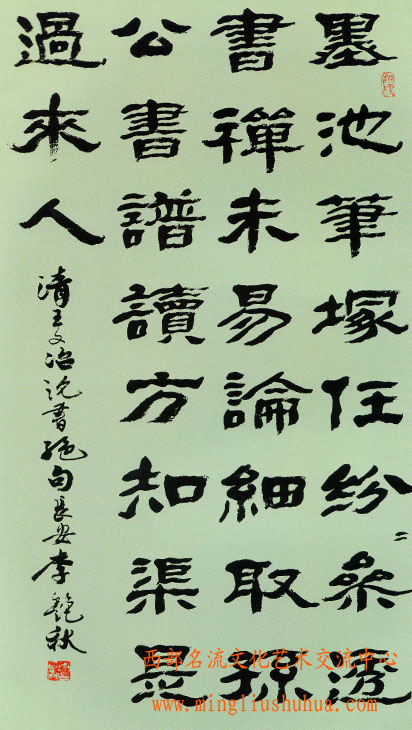 墨池筆塚任紛〻參透
書禪未易論細取孫
公書譜讀方知渠是
過來人
清王文治说書絕句長安李艷秋
西部名流文化艺术交流中心
www.mingliushuhua.com